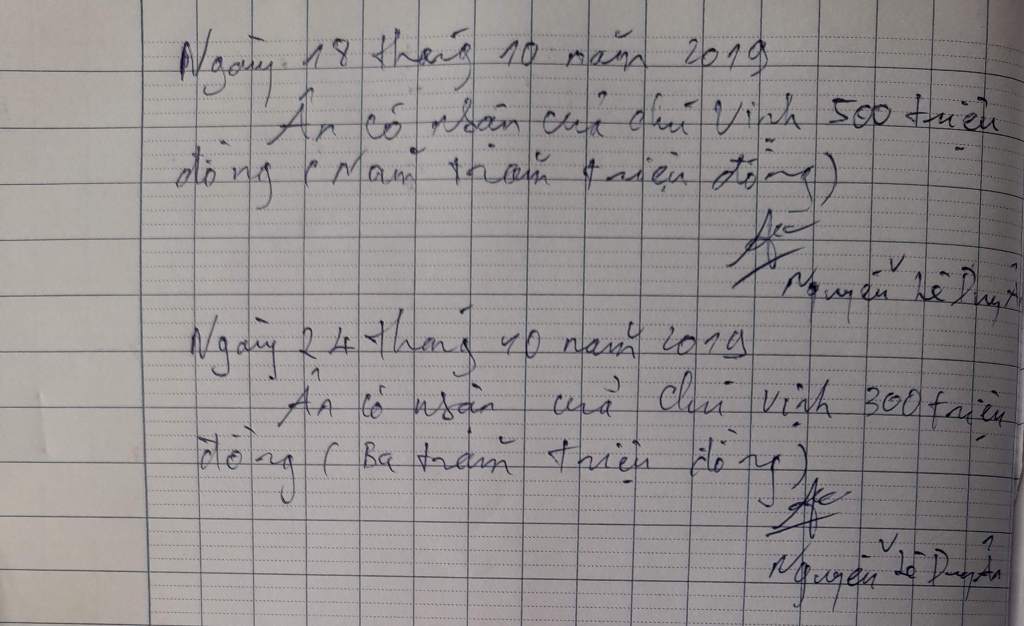 Ngày 18 tháng 10 năm 2019
Ân có nhận của chú Vinh 500 triệu
đồng (Năm trăm triệu đồng)
Nguyễn Lê Duy Ân
Ngày 24 tháng 10 năm 2019
Ân có nhận của chú Vinh 300 triệu
đồng (Ba trăm triệu đồng)
Nguyễn Lê Duy Ân